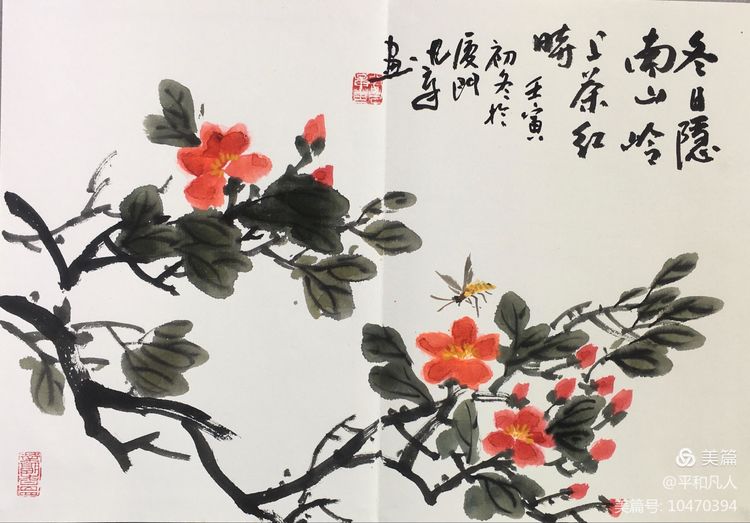 冬日隐
南山岭
上茶红
時
壬寅
初冬於
厦門
画
美篇
@平和凡人
美篇号: 10470394